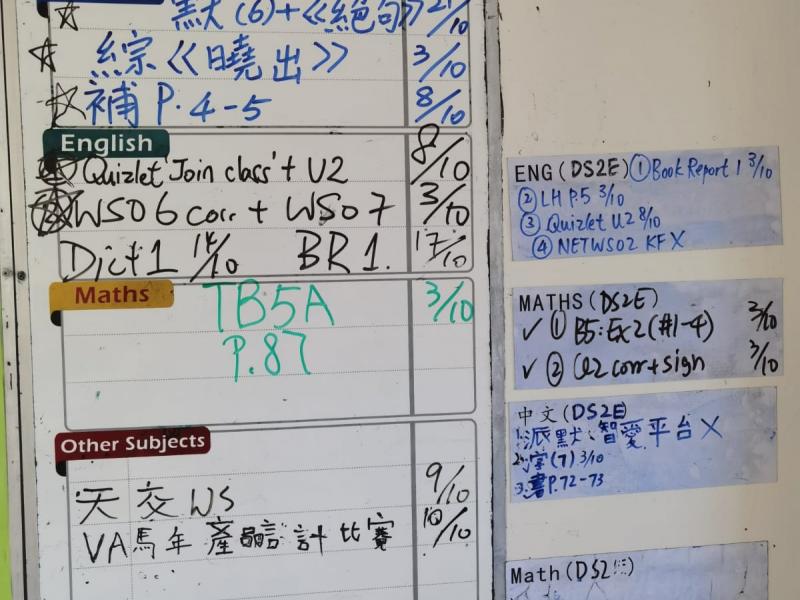 ☆ 默(6)+《絕句》 21/10
☆ 綜《曉出》 3/10
☆ 補 P.4-5 8/10
English
Quizlet 'Join class' + U2 8/10
WS06 corr + WS07 3/10
Dict 1 14/10 BR 1. 17/10
Maths
TB5A 3/10
P.87
Other Subjects
天交WS 9/10
VA馬年產品設計比賽 10/10
ENG (DS2E) ① Book Report 1 3/10
② LH P.5 3/10
③ Quizlet U.2 8/10
④ NETWS02 KF X
MATHS (DS2E)
✓ ① B5: Ex2 (#1-4) 3/10
✓ ② Q2 corr + sign 3/10
中文 (DS2E)
1. 派默、智愛平台 X
2. 字(7) 3/10
3. 書P.72-73
Math (DS2